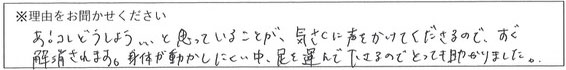 ※理由をお聞かせください
あ!コレどうしよう…と思っていることが、気さくに声をかけてくださるので、すぐ
解消されます。身体が動かしにくい中、足を運んで下さるのでとっても助かりました。